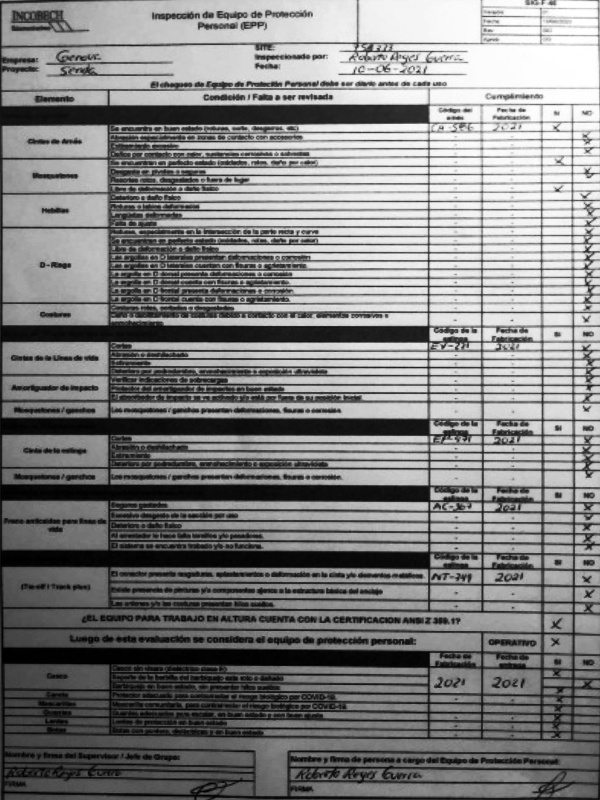 SIG-F-46
INCOBECH
Inspección de Equipo de Protección
Personal (EPP)
Fecha
Rev
SITE:
Empresa: Genova
Inspeccionado por: Roberto Reyes Guerra
Proyecto: Senda
Fecha: 10-06-2021
El chequeo de Equipo de Protección Personal debe ser diario antes de cada uso
Elemento Condición / Falta a ser revisada Cumplimiento
Código del arnés Fecha de Fabricación SI NO
Cintas de Arnés
Se encuentra en buen estado (roturas, corte, desgarros, etc) CA-586 2021 X
Abrasión especialmente en zonas de contacto con accesorios
Estiramiento excesivo
Daños por contacto con calor, sustancias corrosivas o solventes
Mosquetones
Se encuentran en perfecto estado (oxidados, rotos, daño por calor)
Desgaste en pivotes o seguros
Resortes rotos, desgastados o fuera de lugar
Libre de deformación o daño físico
Hebillas
Deterioro o daño físico
Roturas o labios deformados
Lengüetas deformadas
Falta de ajuste
D - Rings
Roturas, especialmente en la intersección de la parte recta y curva
Se encuentran en perfecto estado (oxidados, rotos, daño por calor)
Libre de deformación o daño físico
Las argollas en D laterales presentan deformaciones o corrosión
Las argollas en D laterales cuentan con fisuras o agrietamiento.
La argolla en D dorsal presenta deformaciones o corrosión
La argolla en D dorsal cuenta con fisuras o agrietamiento.
La argolla en D frontal presenta deformaciones o corrosión.
La argolla en D frontal cuenta con fisuras o agrietamiento.
Costuras
Costuras rotas, cortadas o desgastadas
Código de la eslinga Fecha de Fabricación SI NO
Cintas de la Línea de vida
Cortes EV-221 2021
Abrasión o deshilachado
Estiramiento
Deterioro por podredumbre, enmohecimiento o exposición ultravioleta
Amortiguador de impacto
Verificar indicaciones de sobrecargas
Protector del amortiguador de impactos en buen estado
El absorbedor de impacto se ve activado y/o está por fuera de su posición inicial.
Mosquetones / ganchos Los mosquetones / ganchos presentan deformaciones, fisuras o corrosión.
Código de la eslinga Fecha de Fabricación SI NO
Cinta de la eslinga
Cortes EP-471 2021
Abrasión o deshilachado
Estiramiento
Deterioro por podredumbre, enmohecimiento o exposición ultravioleta
Mosquetones / ganchos Los mosquetones / ganchos presentan deformaciones, fisuras o corrosión.
Código de la eslinga Fecha de Fabricación SI NO
Freno anticaídas para línea de vida
Seguros gastados AC-367 2021
Excesivo desgaste de la sección por uso
Deterioro o daño físico
Al arrestador le hace falta tornillos y/o pasadores.
El sistema se encuentra trabado y/o no funciona.
Código de la eslinga Fecha de Fabricación SI NO
(Tie-off / Track plus)
El conector presenta rasgaduras, aplastamientos o deformación en la cinta y/o elementos metálicos. NT-749 2021
Existe presencia de pinturas y/o componentes ajenos a la estructura básica del anclaje
Las uniones y/o las costuras presentan hilos sueltos.
¿EL EQUIPO PARA TRABAJO EN ALTURA CUENTA CON LA CERTIFICACION ANSI Z 359.1? X
Luego de esta evaluación se considera el equipo de protección personal: OPERATIVO X
Fecha de Fabricación Fecha de entrega SI NO
Casco
Casco sin visera (dieléctrico clase E)
Soporte de la barbilla del barbiquejo esta roto o dañado
Barbiquejo en buen estado, sin presentar hilos sueltos
2021 2021
Careta Protector adecuado para contrarrestar el riesgo biológico por COVID-19.
Mascarillas Mascarilla comunitaria, para contrarrestar el riesgo biológico por COVID-19
Guantes Guantes adecuados para escalar, en buen estado y con buen ajuste
Lentes Lentes de protección en buen estado
Botas Botas con puntera, dieléctricas y en buen estado
Nombre y firma del Supervisor / Jefe de Grupo:
Roberto Reyes Guerra
FIRMA
Nombre y firma de persona a cargo del Equipo de Protección Personal:
Roberto Reyes Guerra
FIRMA